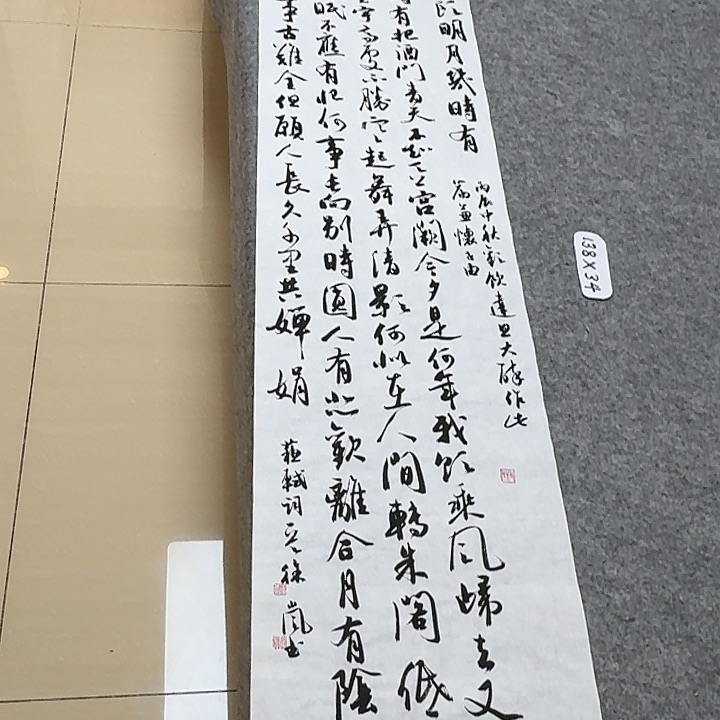 明月幾時有
丙辰中秋歡飲達旦大醉作此
篇兼懷子由
有把酒問青天不知天上宮闕今夕是何年我欲乘風歸去又
宇高處不勝寒起舞弄清影何似在人間轉朱閣低
眠不應有恨何事長向別時圓人有悲歡離合月有陰
事古難全但願人長久千里共嬋娟
蘇軾詞 徐嵐書
138X34